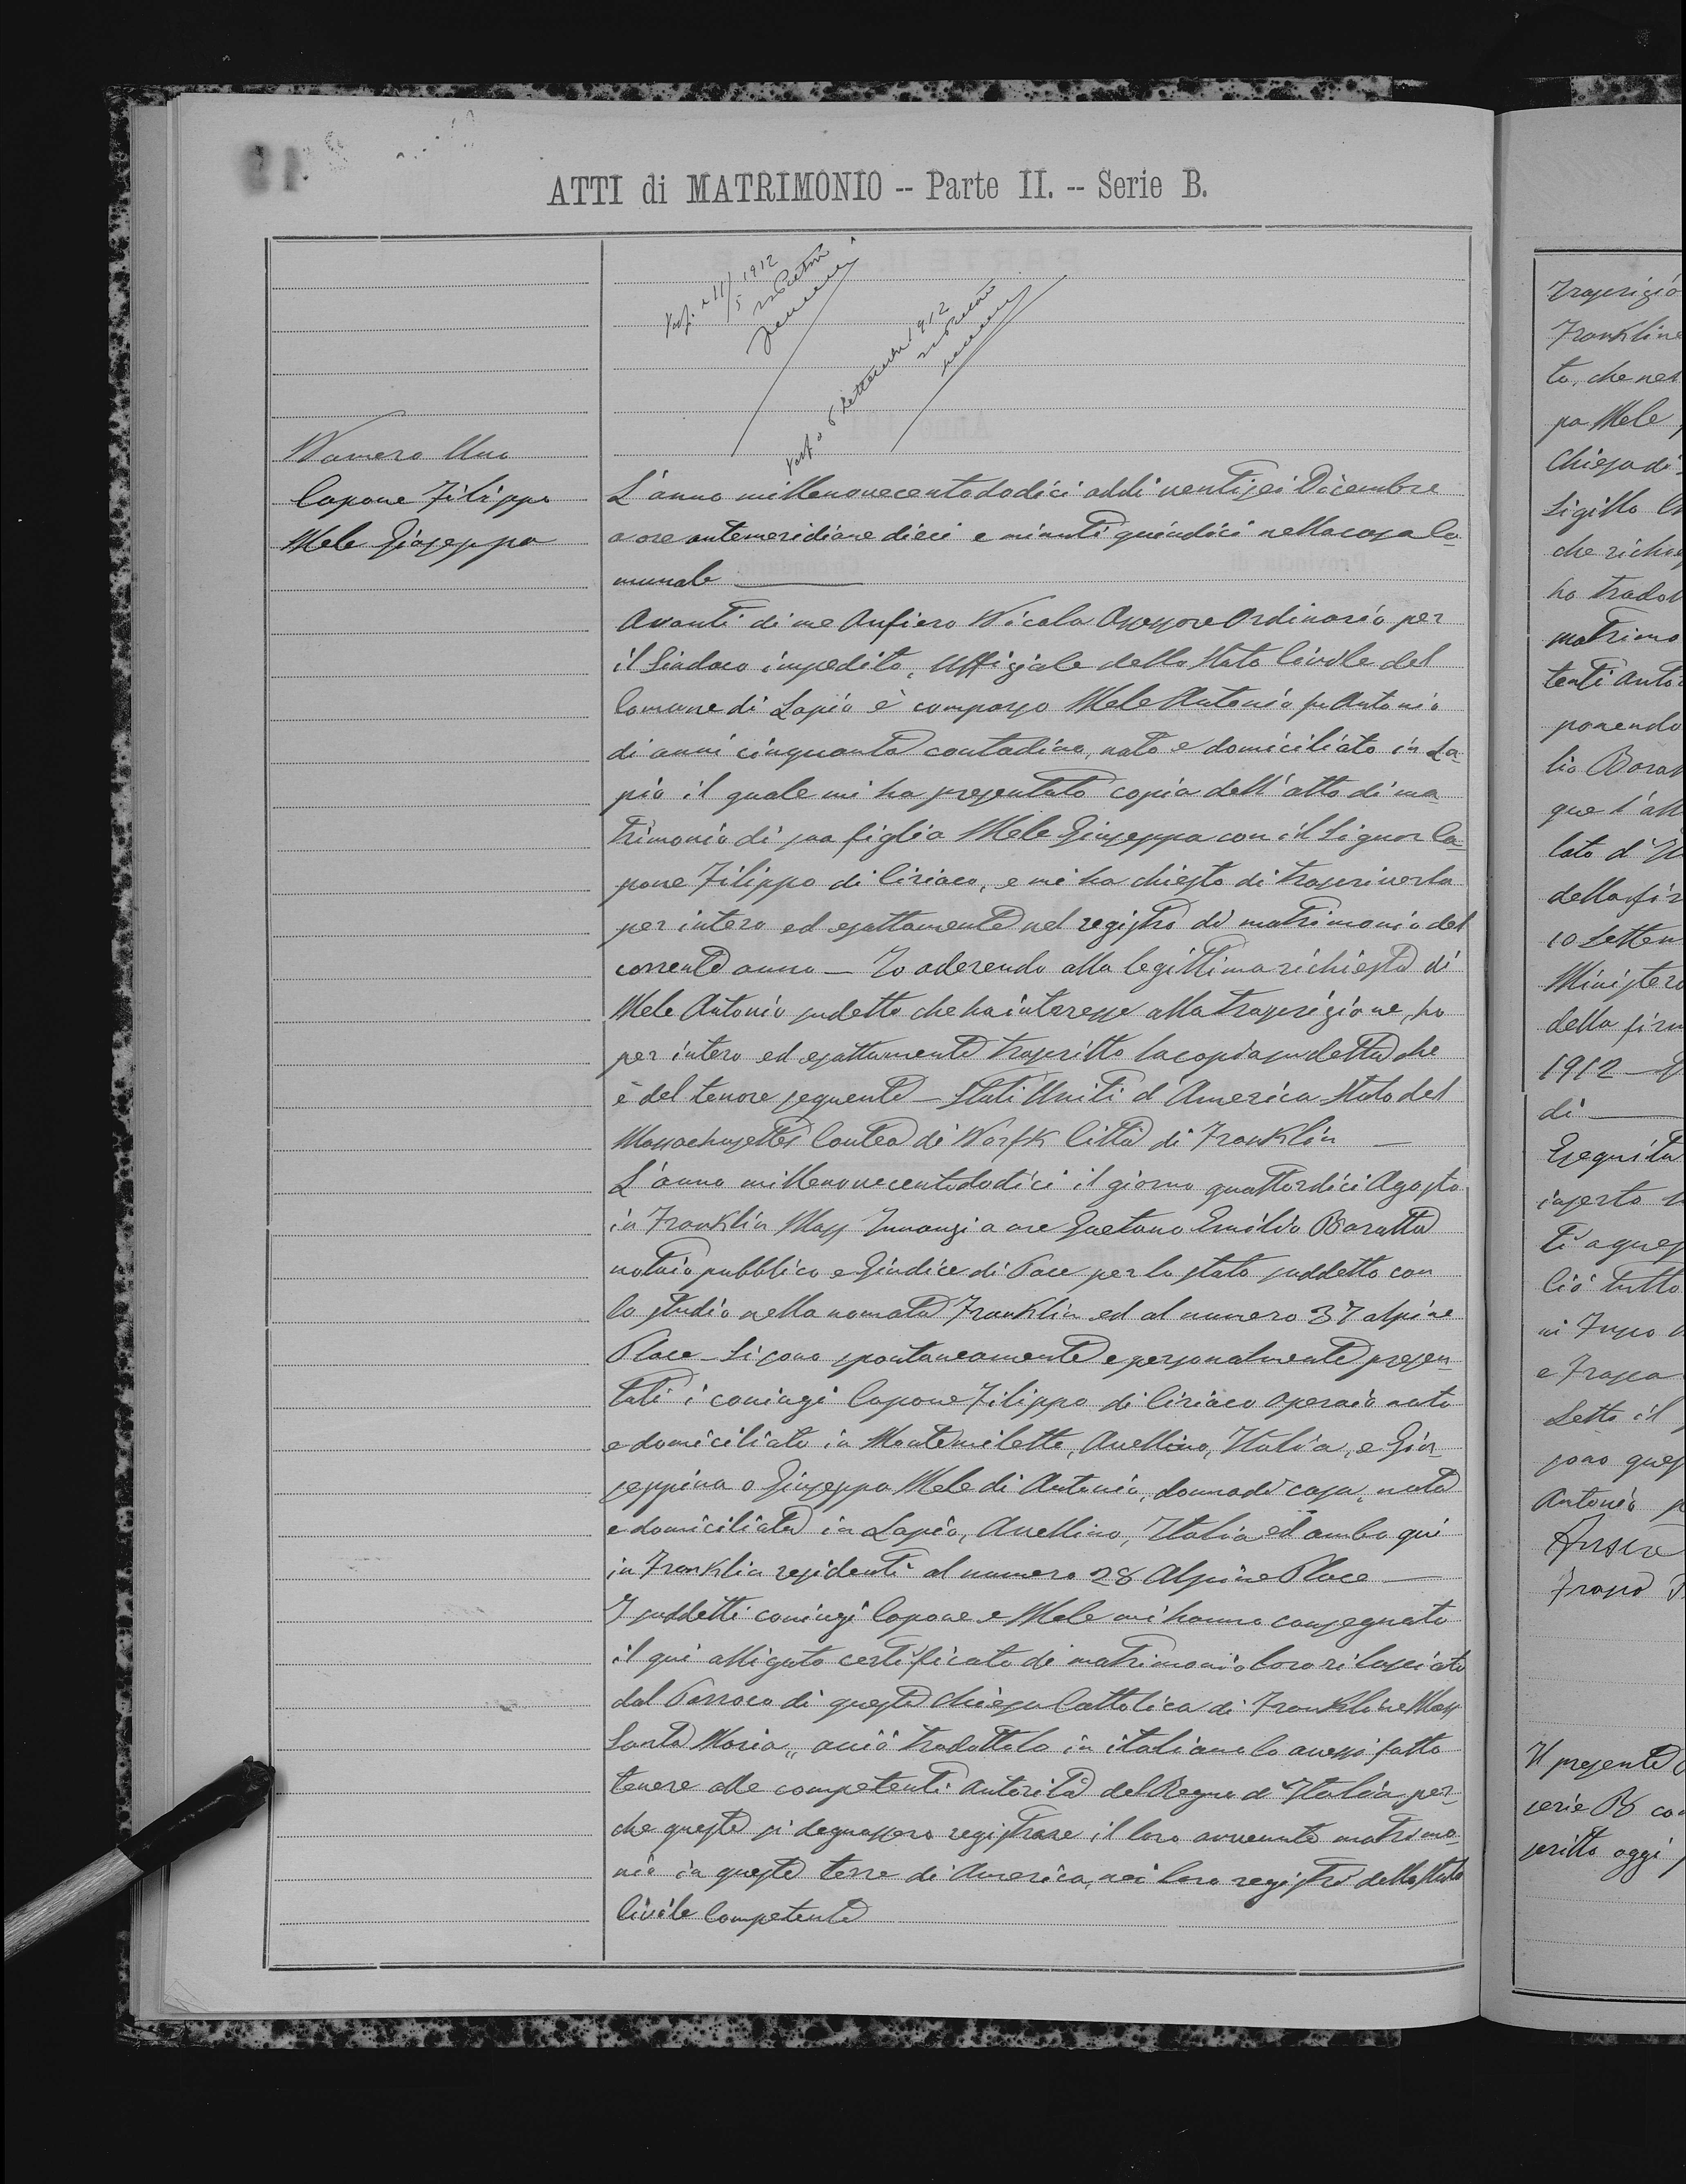 ATTI di MATRIMONIO -- Parte II. -- Serie B.
1912
Settembre 1912
Numero Uno
Capone Filippo
Mele Giuseppa
L'anno millenovecentododici addì ventisei Dicembre
a ore antemeridiane dieci e minuti quindici nella casa Co-
munale
Avanti di me Anfiero Nicola Assessore Ordinario per
il Sindaco impedito, Uffiziale dello Stato Civile del
Comune di Lapio è comparso Mele Antonio fu Antonio
di anni cinquanta contadino, nato e domiciliato in La-
pio il quale mi ha presentato copia dell'atto di ma-
trimonio di sua figlia Mele Giuseppa con il Signor Ca-
pone Filippo di Ciriaco, e mi ha chiesto di trascriverla
per intero ed esattamente nel registro di matrimonio del
corrente anno — Io aderendo alla legittima richiesta di
Mele Antonio sudetto che ha interesse alla trascrizione, ho
per intero ed esattamente trascritto la copia sudetta che
è del tenore seguente — Stati Uniti d'America Stato del
Massachusettes Contea di Norfk Città di Franklin —
L'anno millenovecentododici il giorno quattordici Agosto
in Franklin Mass Innanzi a me Gaetano Emilio Baratta
notaio pubblico e Giudice di Pace per lo stato suddetto con
lo studio nella nomata Franklin ed al numero 37 alpine
Place — Si sono spontaneamente e personalmente presen-
tati i coniugi Capone Filippo di Ciriaco operaio nato
e domiciliato in Montemiletto, Avellino, Italia, e Giu-
seppina o Giuseppa Mele di Antonio, donna di casa, nata
e domiciliata in Lapio, Avellino, Italia ed ambo qui
in Franklin residenti al numero 28 Alpine Place —
I suddetti coniugi Capone e Mele mi hanno consegnato
il qui alligato certificato di matrimonio loro rilasciato
dal Parroco di questa Chiesa Cattolica di Frankline Mass
Santa Maria „ acciò tradottolo in italiano lo avessi fatto
tenere alle competenti autorità del Regno d'Italia per-
che queste si degnassero registrare il loro avvenuto matrimo-
nio in queste terre di America, nei loro registri dello Stato
Civile Competente
Trascrizio
Frankline
to, che nel
pa Mele
Chiesa di
Sigillo
che richie
ha tradot
matrimo
tenti auto
ponendo
lio Barat
que l'all
lato d'
della fir
10 Settem
Ministero
della firm
1912
di
Eseguita
inserto
ti a ques
ciò tutto
ni
e
Letto il
sono ques
Antonio
Il presente
serie B co
scritto oggi